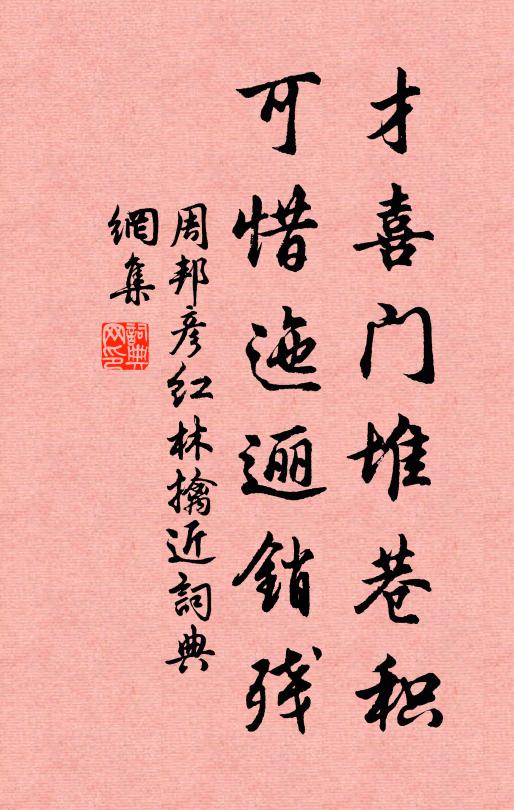 才喜门堆巷积
可惜迤逦销残
周邦彦红林擒近詞典
網集
詞典网印